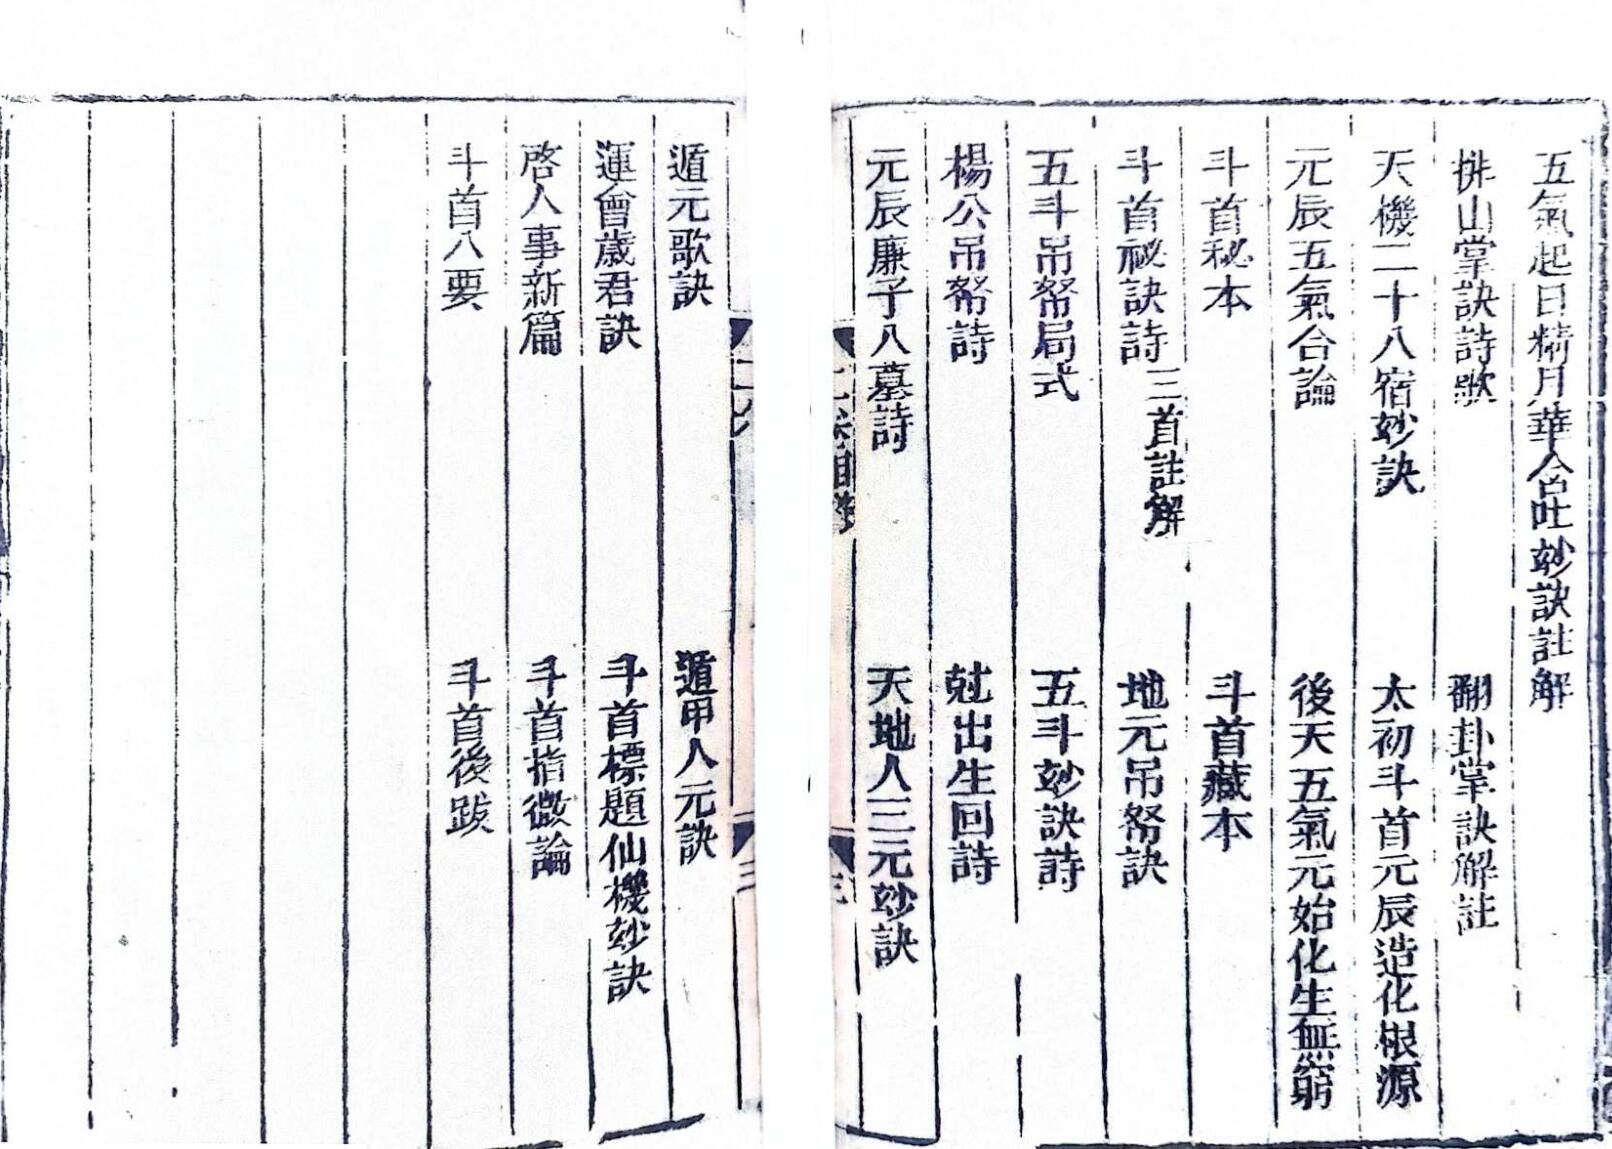 五氣起日精月華含吐妙訣註解
排山掌訣詩歌　翻卦掌訣解註
天機二十八宿妙訣　太初斗首元辰造化根源
元辰五氣合論　後天五氣元始化生無窮
斗首秘本　斗首藏本
斗首祕訣詩三首註解　地元吊帑訣
五斗吊帑局式　五斗妙訣詩
楊公吊帑詩　尅出生回詩
元辰廉子八墓詩　天地人三元妙訣
遁元歌訣　遁甲人元訣
運會歲君訣　斗首標題仙機妙訣
啓人事新篇　斗首指微論
斗首八要　斗首後跋